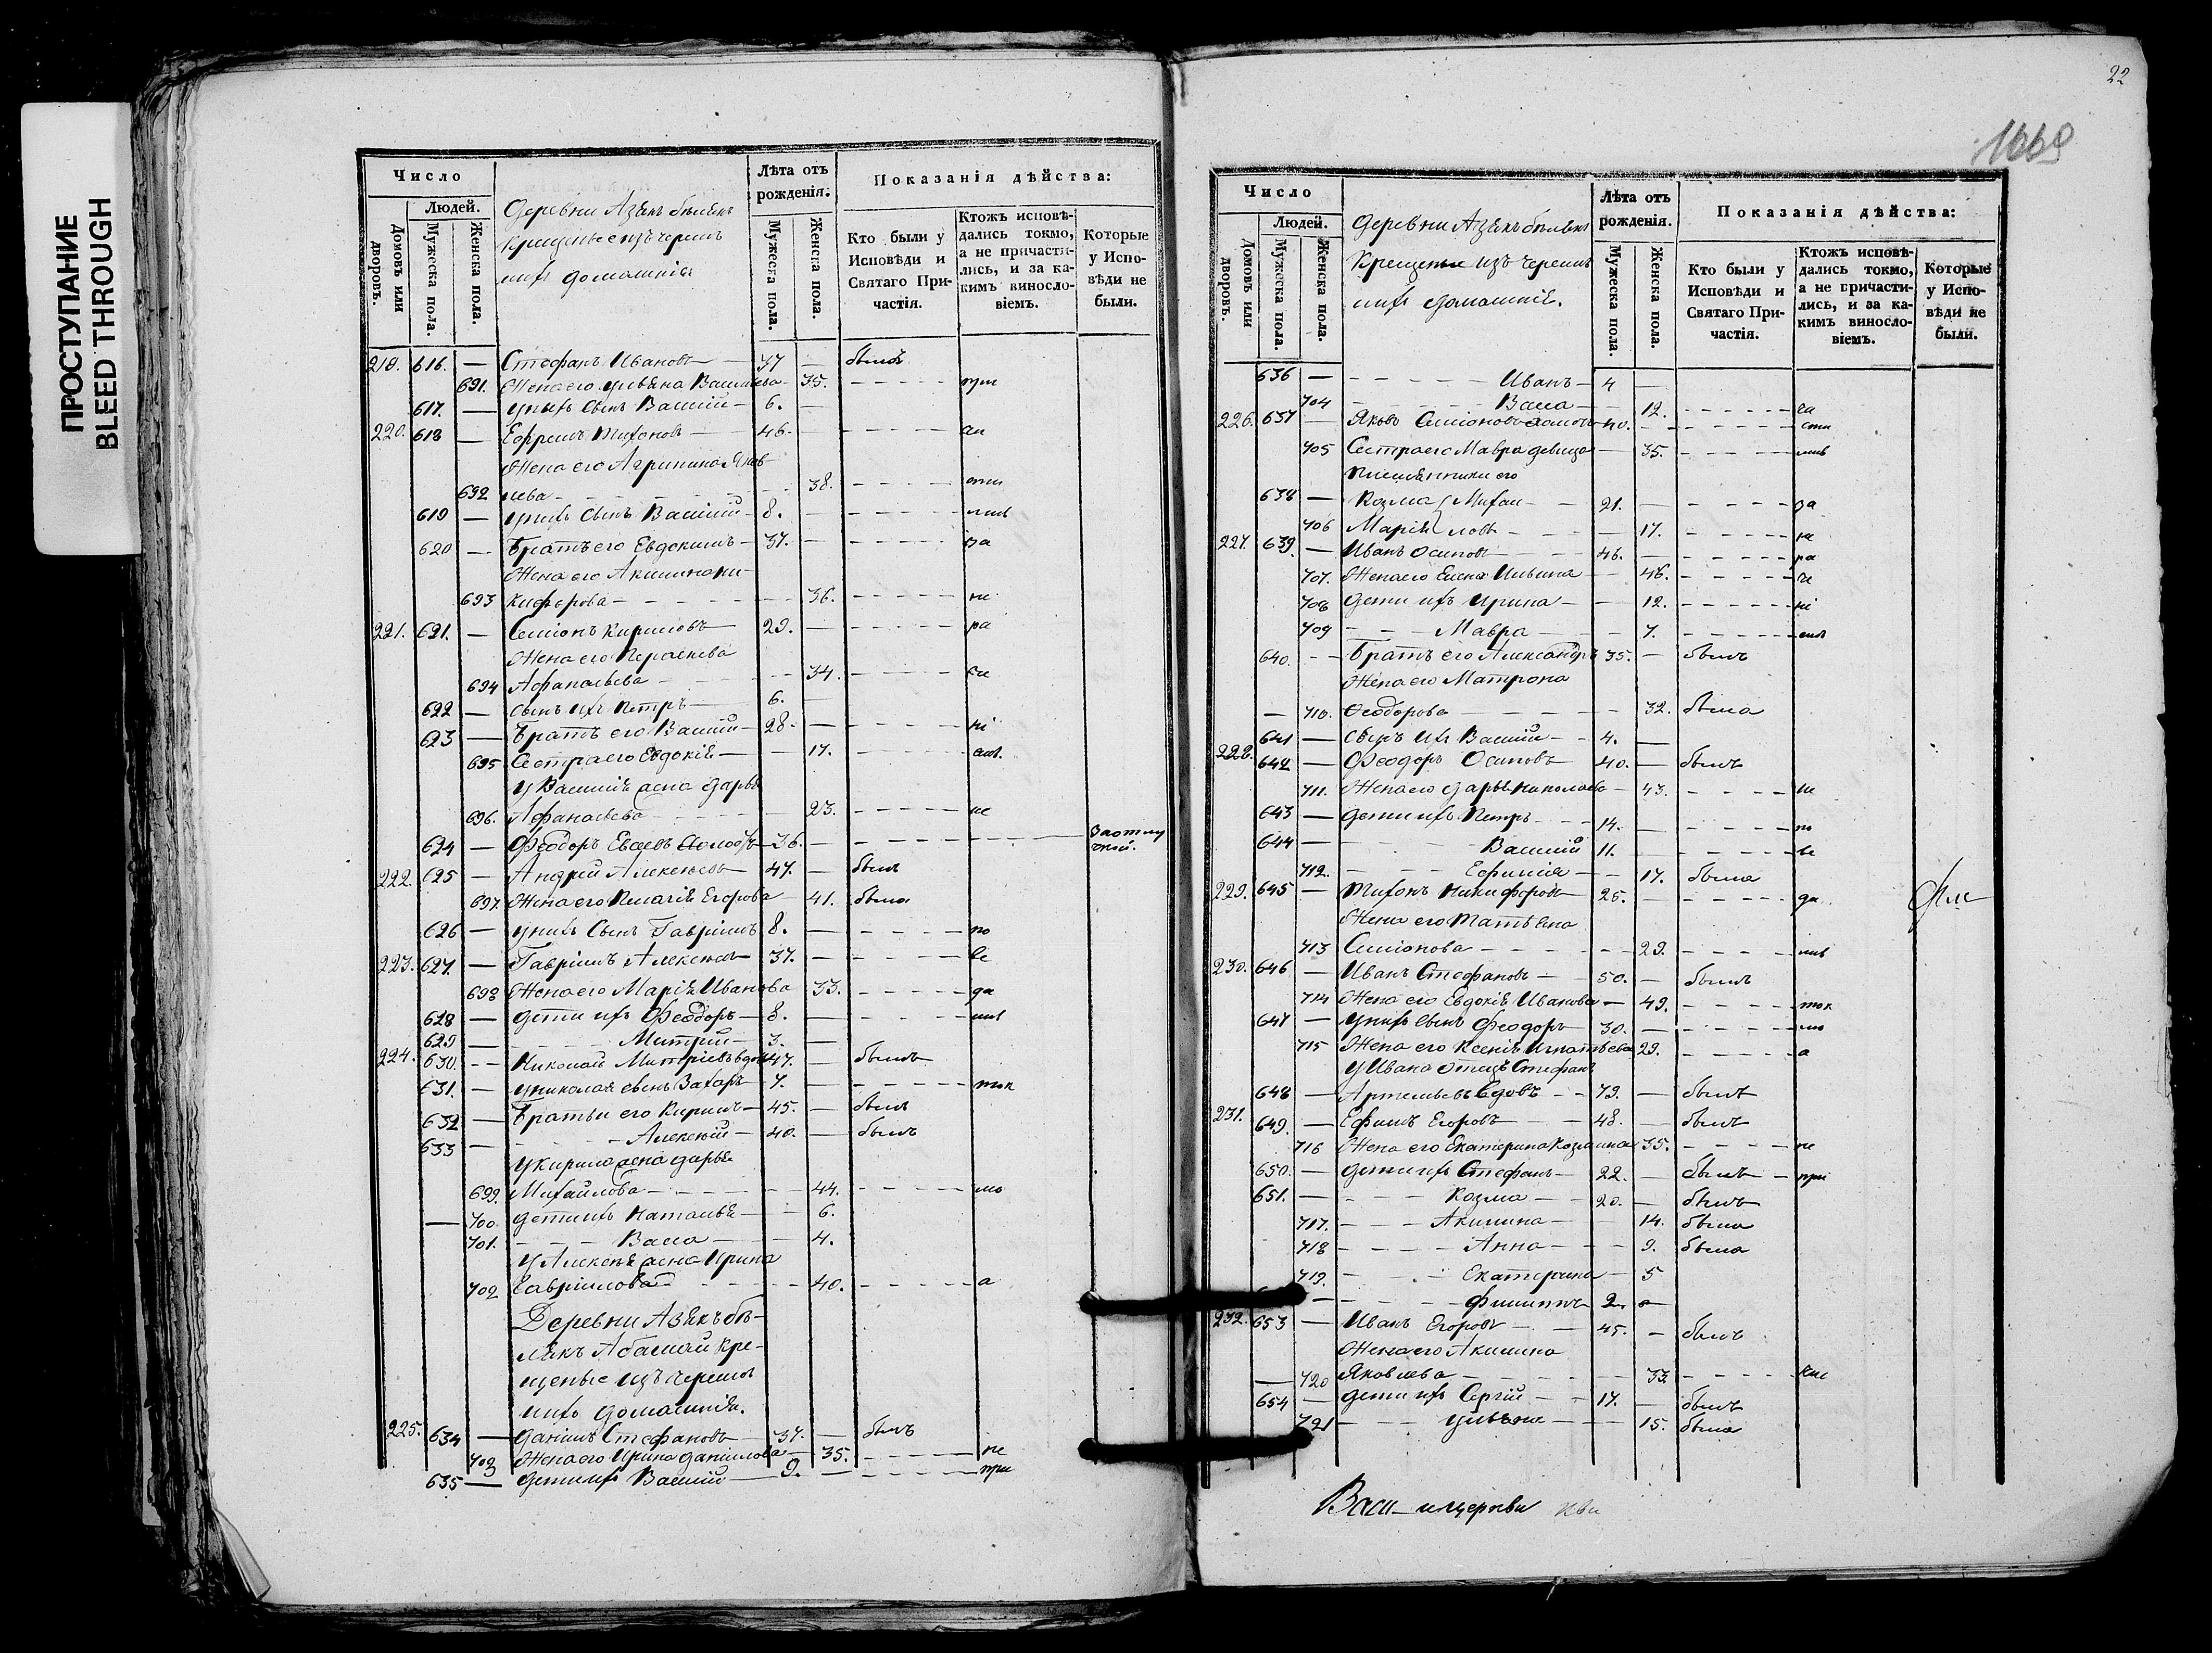 ПРОСТУПАНИЕ
BLEED THROUGH
Число
Людей.
Домовъ или дворовъ.
Мужеска пола.
Женска пола.
Деревни Азякъ бѣлякъ
крещеные изъ черемъ
ихъ домашнія
Лѣта отъ рожденія.
Мужеска пола.
Женска пола.
Показанія дѣйства:
Кто были у Исповѣди и Святаго Причастія.
Ктожъ исповѣдались токмо, а не причастились, и за какимъ винословіемъ.
Которые у Исповѣди не были.
219. 616. — Стефанъ Ивановъ — 37 — былъ
691. Жена его Ульяна Васильева — 35. при
617. — у нихъ сынъ Василій — 6. —
220. 618 — Ефремъ Тихоновъ — 46. —
Жена его Агрипина Яков-
692 лева — 38.
619 — у нихъ сынъ Василій — 8. —
620 — Братъ его Евдокимъ — 37. — за
Жена его Акилина Ни-
693 кифорова — 36. не
221. 621. — Семіонъ Кириловъ 29. — ра
Жена его Параскева
694 Афанасьева — 34.
622 — сынъ ихъ Петръ — 6.
623 — Братъ его Василій — 28. — ні
695 Сестра его Евдокія — 17.
у Василія жена Дарья
696. Афанасьева — 23. не
624 — Феодоръ Евсеевъ — 36. — За отлу
чкой.
222. 625 — Андрей Алексеевъ — 47. — былъ
697. Жена его Пелагія Егорова 41. была
626 — у нихъ сынъ Гавріилъ 8. — по
223. 627. — Гавріилъ Алексеевъ 37. — ве
698 Жена его Марія Иванова 33. да
628 — дети ихъ Феодоръ — 8. —
629 — Митрій — 3. —
224. 630. — Николай Митріевъ вдовъ 47. — былъ
631. — у Николая сынъ Захаръ — 7. ток
632 — Братья его Кирилъ — 45. — былъ
633 — Алексій — 40. — былъ
у Кирила жена Дарья
699. Михайлова — 44. мо
700. дети ихъ Наталья — 6.
701. Васса — 4.
у Алексея жена Ирина
702 Гавріилова — 40. а
Деревни Азякъ бѣ-
лякъ Абашай кре-
щеные изъ черемъ
ихъ домашнія.
225. 634 — Даніилъ Стефановъ — 37. — былъ
703 Жена его Ирина Даніилова — 35. не
635 — дети ихъ Василій — 9. — при
22
1669
Число
Людей.
Домовъ или дворовъ.
Мужеска пола.
Женска пола.
Деревни Азякъ бѣлякъ
Крещеные изъ черемъ
ихъ домашніе.
Лѣта отъ рожденія.
Мужеска пола.
Женска пола.
Показанія дѣйства:
Кто были у Исповѣди и Святаго Причастія.
Ктожъ исповѣдались токмо, а не причастились, и за какимъ винословіемъ.
Которые у Исповѣди не были.
636 — Иванъ — 4 —
704 Васса — 12.
226. 637 — Яковъ Семіоновъ — 40.
705 Сестра его Мавра девица — 35.
Племянники его
638 — Козма Михаи — 21. — за
706 Марія ловы — 17. не
227. 639. — Иванъ Осиповъ — 46. — ра
707. Жена его Елена Ильина — 46.
708 дети ихъ Ирина — 12. ні
709 Мавра — 7.
640. — Братъ его Александръ 35. — былъ
Жена его Матрона
710. Феодорова — 32. была
641 — сынъ ихъ Василій — 4. —
228. 642 — Феодоръ Осиповъ 40. — былъ
711. Жена его Дарья Николаева — 43. не
643 — дети ихъ Петръ — 14. — по
644 — Василій 11. — ве
712. Ефимія — 17. была
229. 645 — Тихонъ Никифоровъ 25. — да
Жена его Татьяна
713 Семіонова — 29.
230. 646 — Иванъ Стефановъ — 50. — былъ
714 Жена его Евдокія Иванова — 49. ток
647 — у нихъ сынъ Феодоръ — 30. — мо
715 Жена его Ксенія Игнатьева 29. а
у Ивана отецъ Стефанъ
648 — Артемьевъ вдовъ — 79. — былъ
231. 649. — Ефимъ Егоровъ — 48. — былъ
716 Жена его Екатерина Козмина 35. не
650. — дети ихъ Стефанъ — 22. — былъ — при
651. — Козма — 20. — былъ
717. Акилина — 14. была
718 Анна — 9. была
719. Екатерина — 5
— Филиппъ 2. —
232. 653 — Иванъ Егоровъ — 45. — былъ
Жена его Акилина
720 Яковлева — 33.
654 — дети ихъ Сергій — 17. — былъ
721 Ульяна — 15. была
церкви